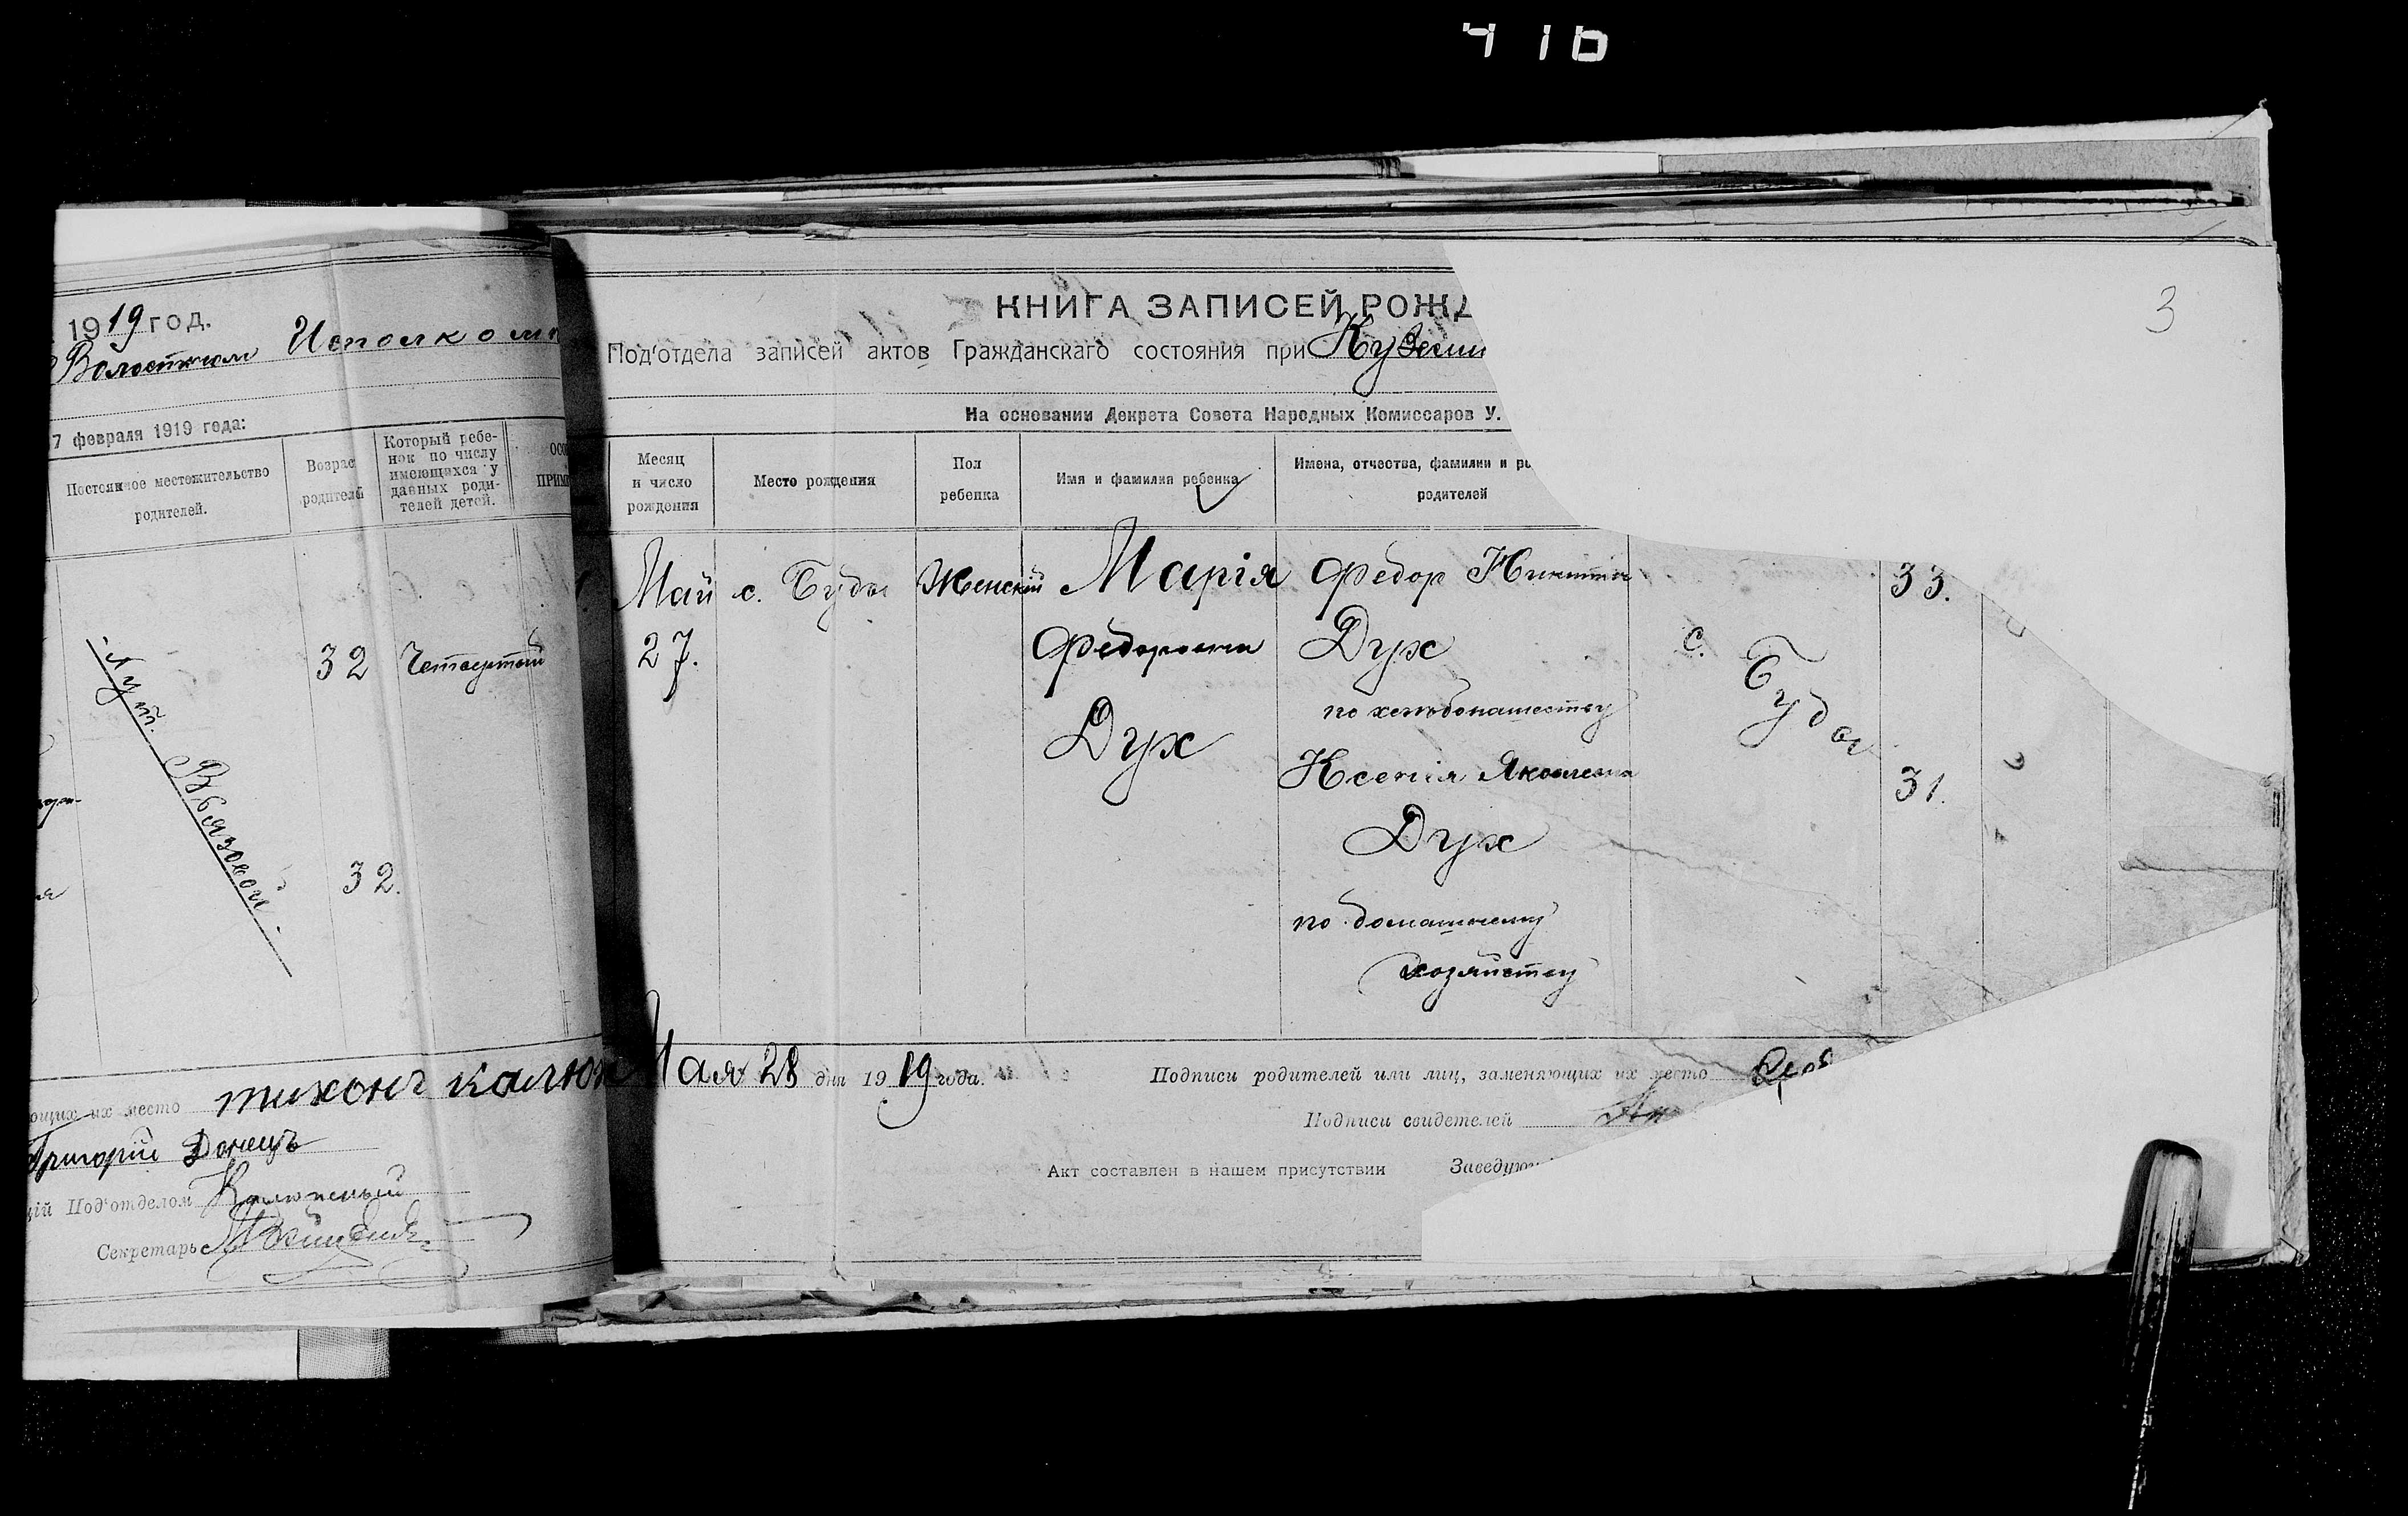 416
1919 год.
Волостном Исполком
7 февраля 1919 года:
Постоянное местожительство
родителей.
Возрас
родителей
Который ребе-
нок по числу
имеющихся у
данных роди-
телей детей.
ОСО
ПРИМ
Хут. Вьязовой.
32 Четвертый
32.
ющих их место тихонъ калюж
Григорій Донецъ
цій Под'отделом
Секретарь
3
КНИГА ЗАПИСЕЙ РОЖД
Под'отдела записей актов Гражданскаго состояния при Куземи
На основании Декрета Совета Народных Комиссаров У.
Месяц
и число
рождения
Место рождения
Пол
ребенка
Имя и фамилия ребенка
Имена, отчества, фамилии и ро
родителей
Май с. Буды Женскій Марія Федор Никитин 33.
27. Федоровна Дух с. Буды
по хлебопашеству
Дух
Ксенія Яковлевна 31.
Дух
по домашнему
хозяйству
Мая 28 дня 1919 года. Подписи родителей или лиц, заменяющих их место
Подписи свидетелей
Акт составлен в нашем присутствии Заведую